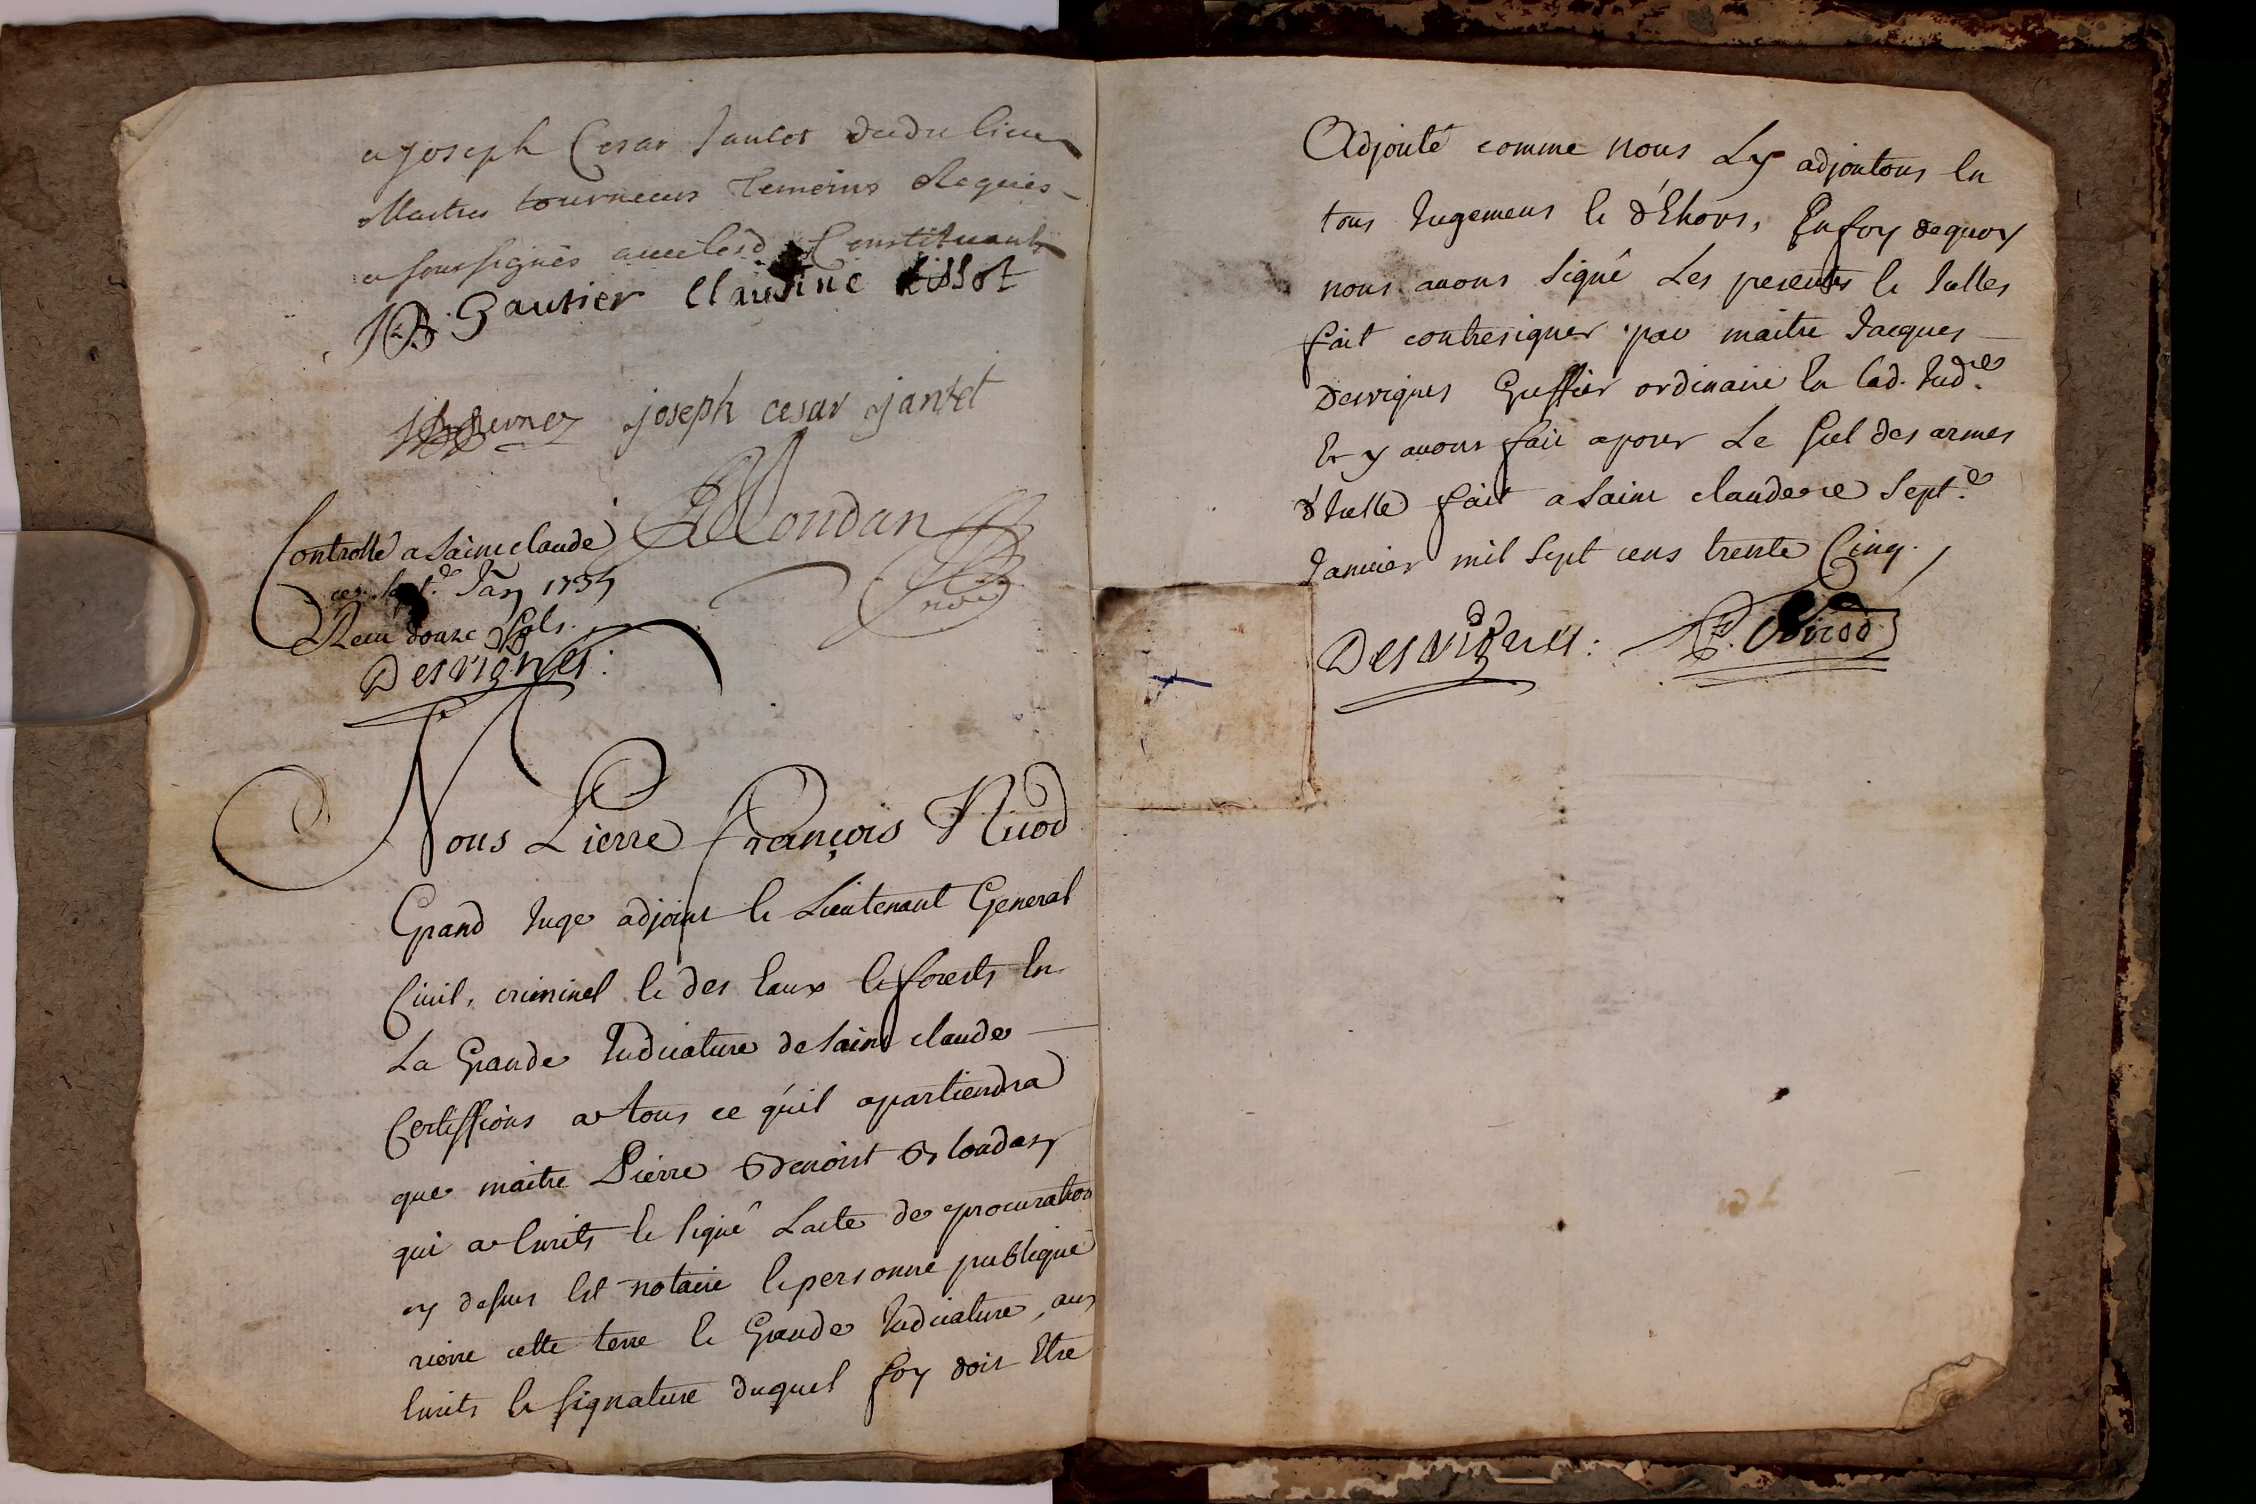 et joseph Cesar Janvet dudu lieu
Maitres tourneurs temoins Requis
et soussignés avec lesd. Constituants
JB Gautier Claudine tissot
joseph cesar janvet
Controllé a saint claude
ce sept.e Jan 1735
Reçu douze sols.
Desvignes:
Nous Pierre françois Nicod
Grand Juge adjoint le Lieutenant General
Civil, criminel et des Eaux et forests En
La Grande Judicature de saint claude
Certiffions a tous ce qu'il apartiendra
que maitre Pierre Benoist
qui a Ecrits et signé Lacte de procuration
cy desus Est notaire et personne publique
riere cette terre et Grande Judicature, aux
Ecrits et signature duquel foy doit Etre
Adjouté comme nous Ly adjoutons En
tous Jugemens et d'Ehors, En foy de quoy
nous avons signé Les presentes et Icelles
fait contresigner par maitre Jacques
Desvignes Greffier ordinaire En lad. Jud.re
Et y avons fait aposer Le scel des armes
d'Icelle fait a saint claude ce sept.e
Janvier mil sept cens trente Cinq.
Desvignes: P. Nicod